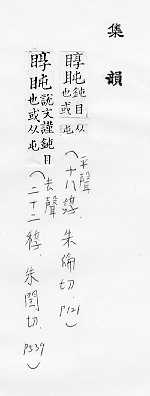 集韻
䁷盹鈍目也或从屯(平聲十八諄,朱倫切.P121)
䁷盹說文謹鈍目也或从屯(去聲二十二稕,朱閏切.P539)